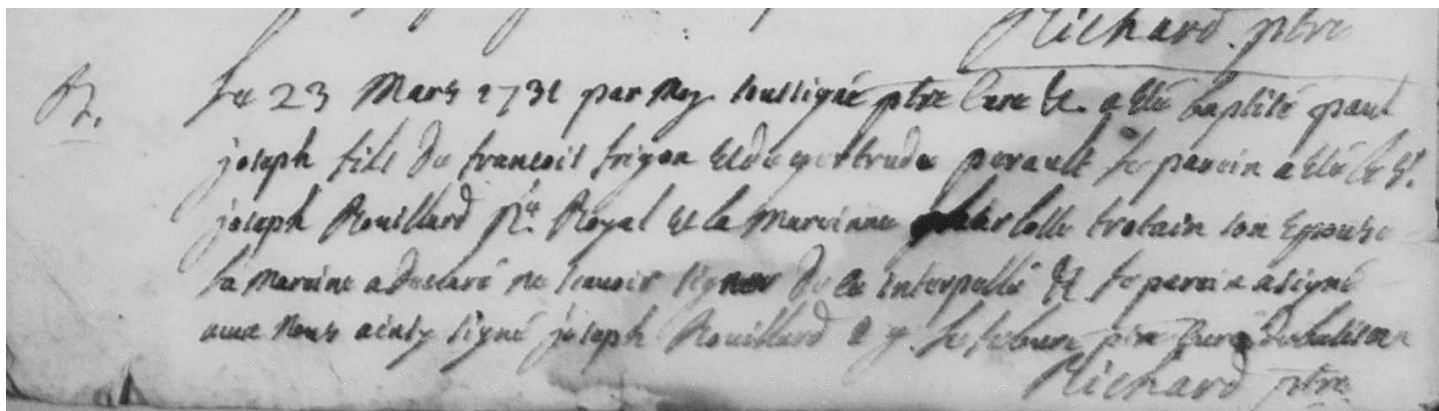 Richard ptre
B.
Le 23 Mars 1731 par Moy soussigné ptre Curé &c. a Eté baptisé paul
joseph fils de francois frigon et de gertrude perault le parein a Eté le Sr.
joseph Rouillard Nre. Royal et la Mareinne charlotte trotain son Epouse
la Mareine a declaré ne scavoir signer de ce interpellé &c. le parein a signé
avec Nous ainsy signé joseph Rouillard & g. lefebure ptre Curé de batiscan
Richard ptre